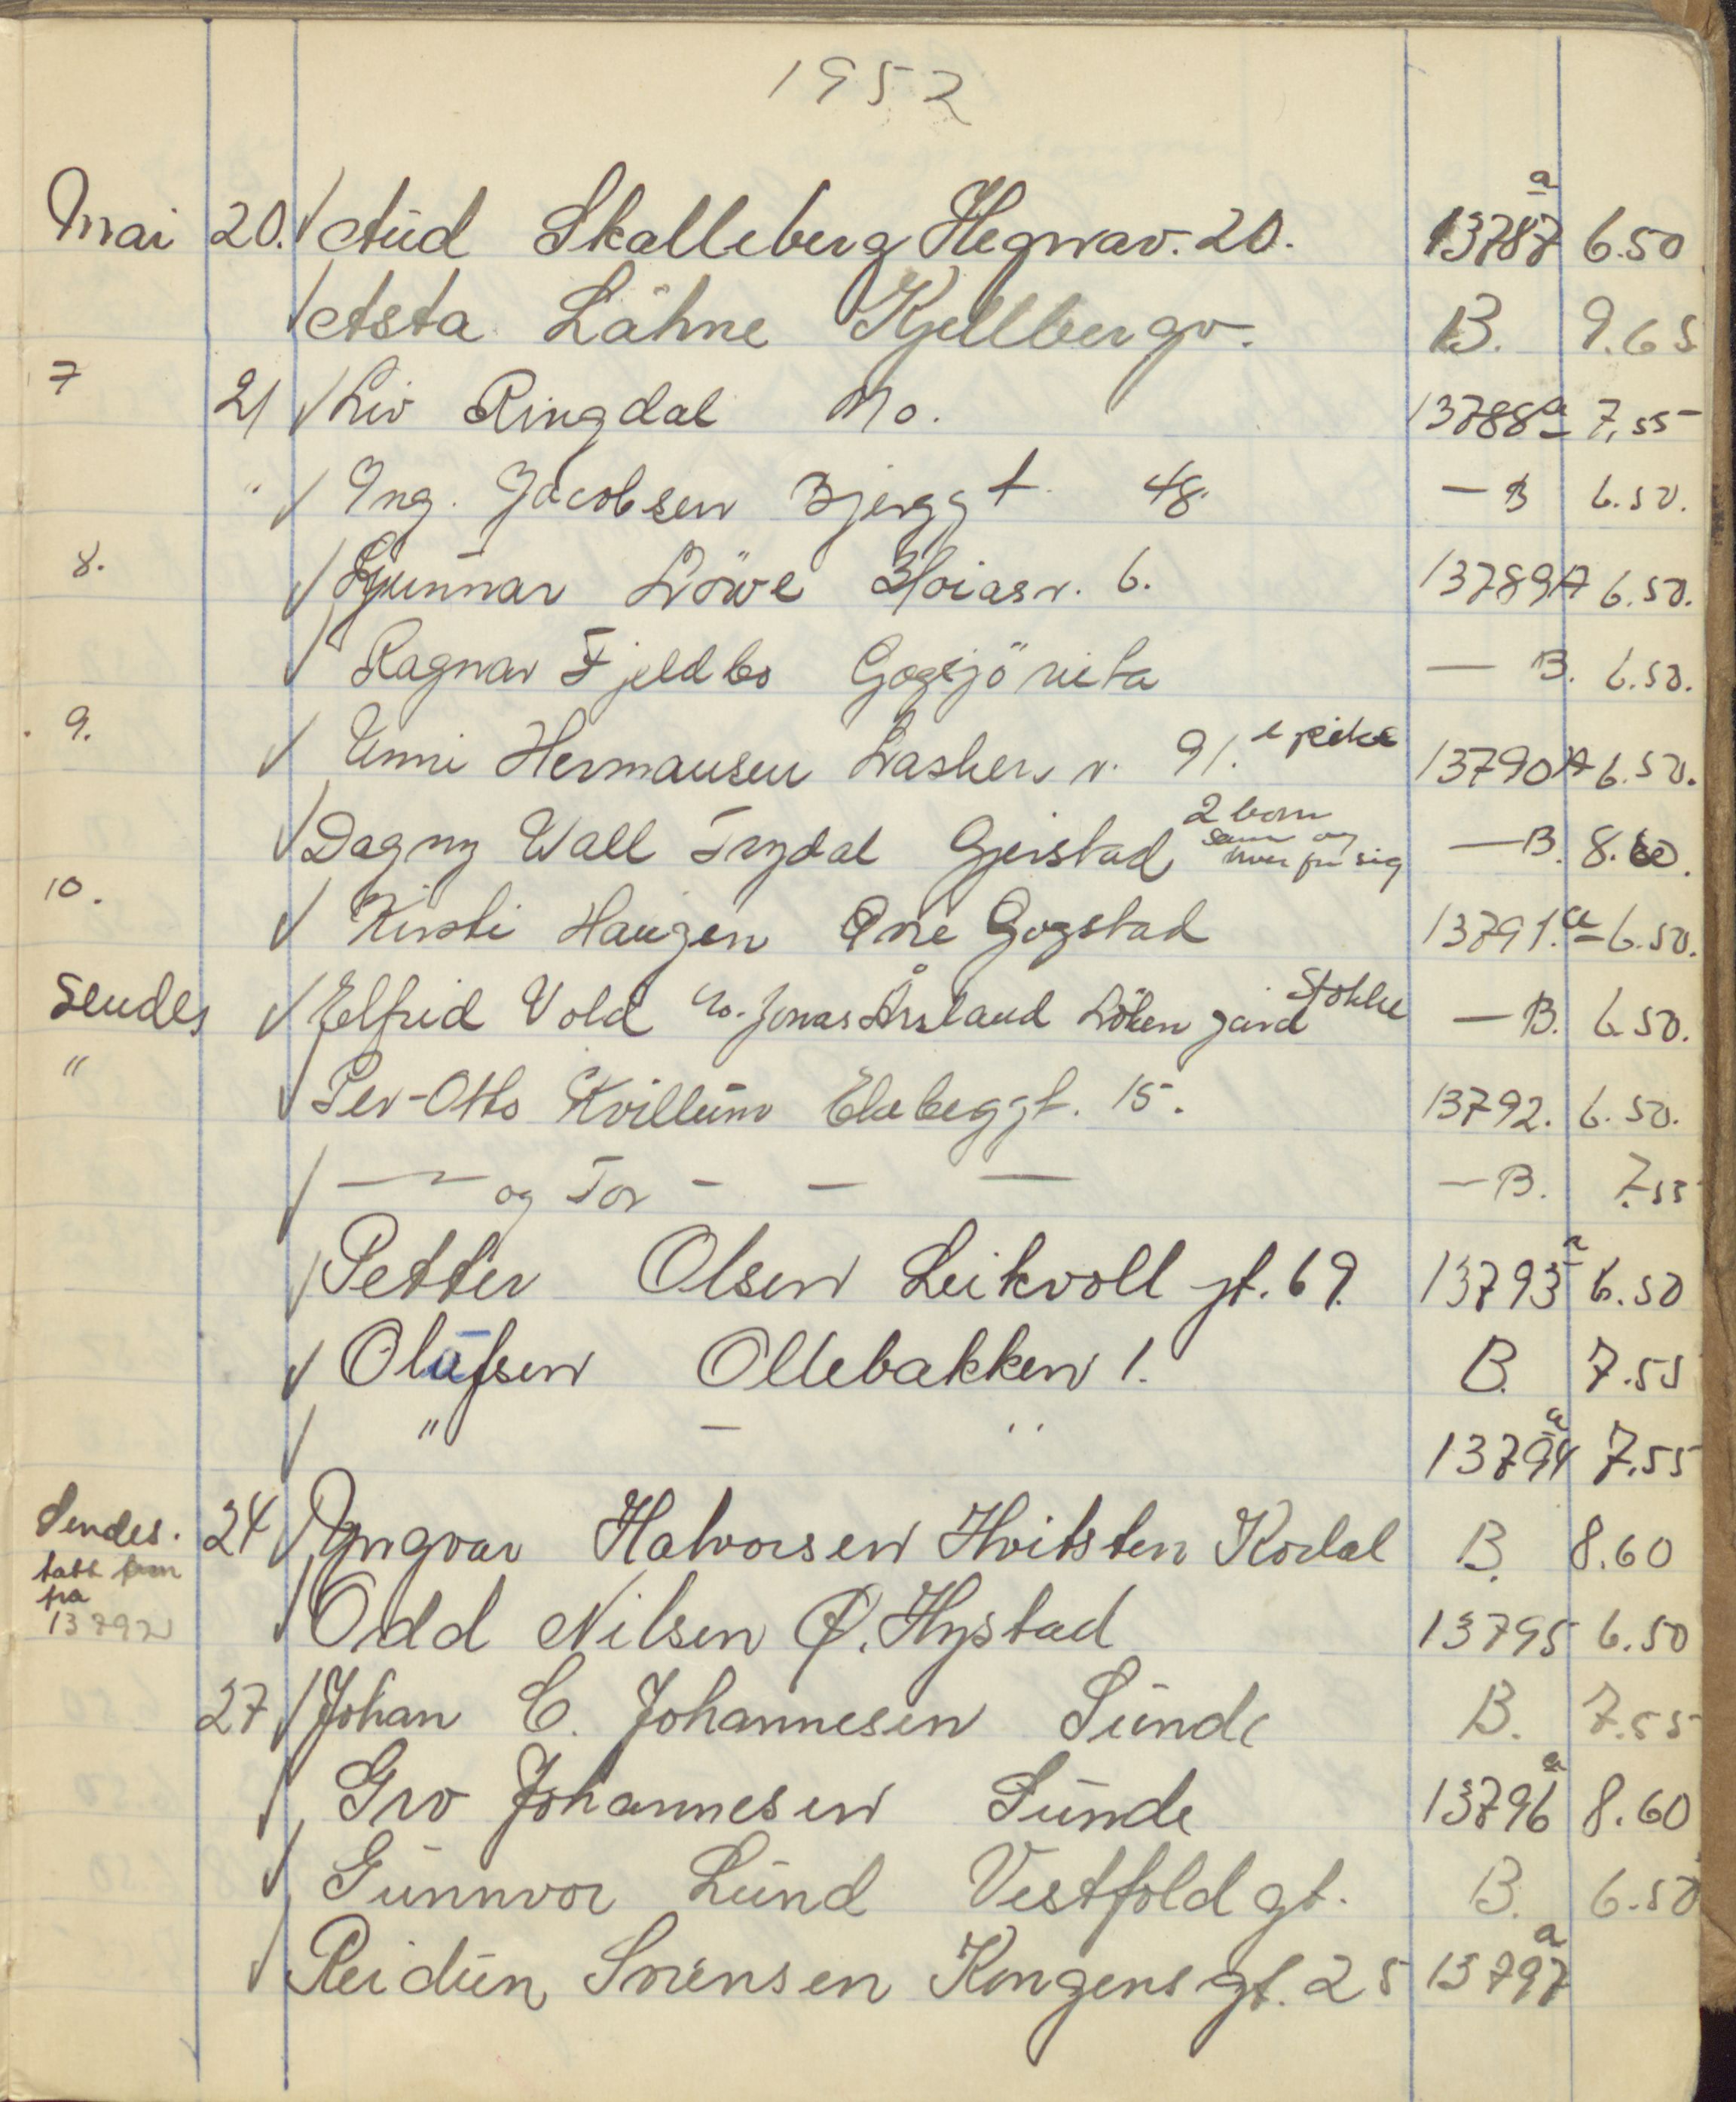 1952
Mai 20. Aud Skalleberg Hegnav. 20. 13787 a 6.50
Asta Lähne Kjellbergv. B. 9.65
7 21 Liv Ringdal Mo. 13788 a 7,55
" Ing. Jacobsen Bjerggt. 48. — B 6.50.
8. Gunnar Löwe Moiasv. 6. 13789 A 6.50.
Ragnar Fjeldbo — B. 6.50.
9. Unni Hermansen v. 91. 13790 A 6.50.
Dagny Wall Trydal Gjerstad 2 barn sam og hver for sig — B. 8.60.
10. Kirsti Haugen Gogstad 13791. a 6.50.
Sendes Elfrid Vold Jonas Årsland Löken gård Stokke — B. 6.50.
" Per-Otto Kvillum Ekebeggt. 15. 13792. 6.50.
— og Tor - — — — B. 7.55
Petter Olsen Leikvoll gt. 69. 13793 a 6.50
Olafsen Ollebakken 1. B. 7.55
" — " 13794 a 7.55
Sendes. 24 Yngvar Halvorsen Hvitsten Kodal B. 8.60
tatt fra 13792 Odd Nilsen Ø. Hystad 13795 6.50
27 Johan C. Johannesen Sunde B. 7.55
Gro Johannesen Sunde 13796 a 8.60
Gunnvor Lund Vestfoldgt. B. 6.50
Reidun Sørensen Kongensgt. 25 13797 a